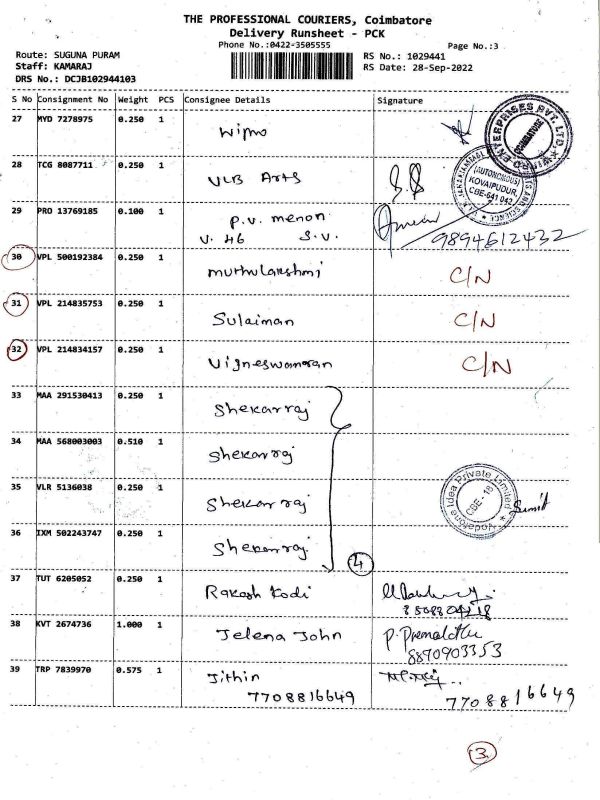 THE PROFESSIONAL COURIERS, Coimbatore
Delivery Runsheet - PCK
Phone No.:0422-3505555
Page No.:3
Route: SUGUNA PURAM
Staff: KAMARAJ
DRS No.: DCJB102944103
RS No.: 1029441
RS Date: 28-Sep-2022
S No Consignment No Weight PCS Consignee Details Signature
27 MYD 7278975 0.250 1
Wipro
ENTERPRISES PVT. LTD
COIMBATORE
28 TCG 8087711 0.250 1
VLB Arts
(AUTONOMOUS)
KOVAIPUDUR,
CBE-641 042
29 PRO 13769185 0.100 1
P.V. menon
V. 46 S.V.
9894612432
30 VPL 500192384 0.250 1
muthulakshmi C/N
31 VPL 214835753 0.250 1
Sulaiman C/N
32 VPL 214834157 0.250 1
Vigneswamaran C/N
33 MAA 291530413 0.250 1
Shekarraj
34 MAA 568003003 0.510 1
Shekarraj
35 VLR 5136038 0.250 1
Shekarraj
Vodafone Idea Private Limited
CBE-18
Sumit
36 IXM 502243747 0.250 1
Shekarraj
4
37 TUT 6205052 0.250 1
Rakesh Kodi
38 KVT 2674736 1.000 1
Jelena John
P. Premalatha
8890903353
39 TRP 7839970 0.575 1
Jithin
7708816649 7708816649
3